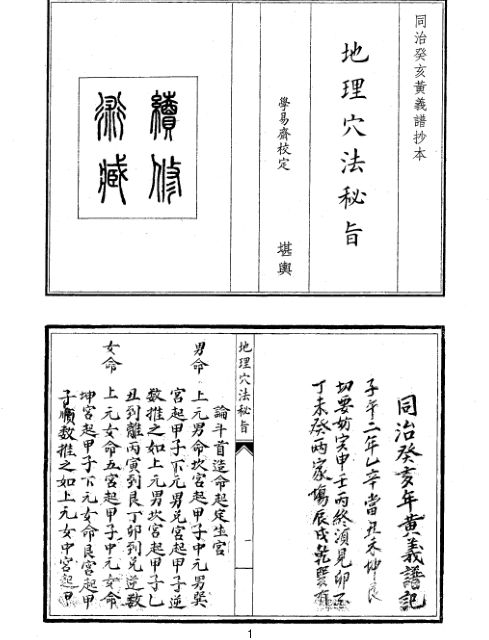 同治癸亥黃義譜抄本
地理穴法秘旨
學易齋校定 堪輿
續修
術藏
同治癸亥年黃義譜記
子午二年乙辛當丑未坤艮
切要妨寅申壬丙終須見卯酉
丁未癸丙家傷辰戌乾巽有
地理穴法秘旨 一
論斗首造命起定生宮
男命 上元男命坎宮起甲子中元男巽
宮起甲子下元男兌宮起甲子逆
數推之如上元男坎宮起甲子乙
丑到離丙寅到艮丁卯到兌逆數
女命 上元女命五宮起甲子中元女命
坤宮起甲子下元女命艮宮起甲
子順數推之如上元女中宮起甲
1